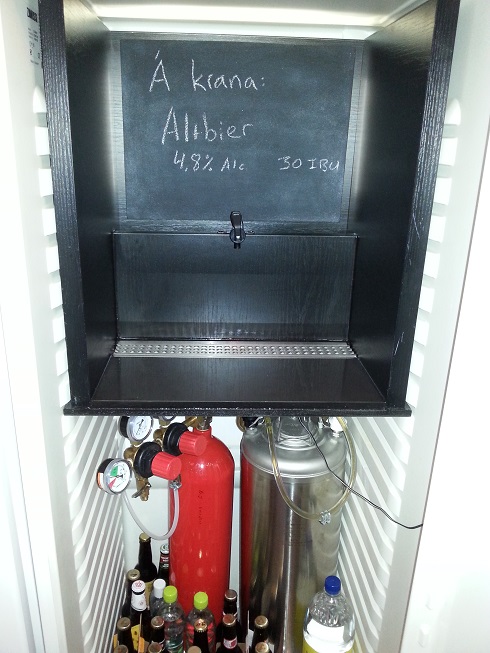 Á krana:
Altbier
4,8% Alc 30 IBU